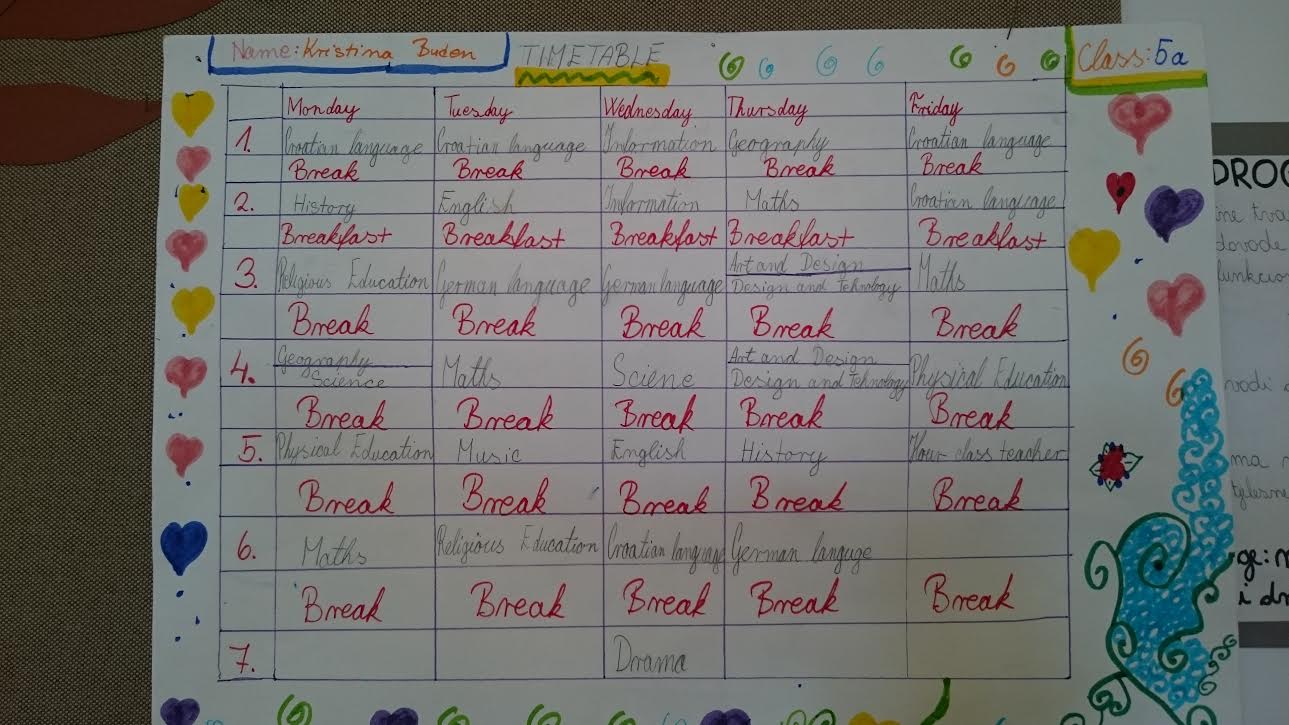 Name: Kristina Buden TIMETABLE Class: 5a
Monday Tuesday Wednesday Thursday Friday
1. Croatian language Croatian language Information Geography Croatian language
Break Break Break Break Break
2. History English Information Maths Croatian language
Breakfast Breakfast Breakfast Breakfast Breakfast
3. Religious Education German language German language Art and Design Maths
Design and Tehnology
Break Break Break Break Break
4. Geography Maths Sciene Art and Design Physical Education
Science Design and Tehnology
Break Break Break Break Break
5. Physical Education Music English History Your class teacher
Break Break Break Break Break
6. Maths Religious Education Croatian language German languge
Break Break Break Break Break
7. Drama
DROG
dovode
vodi
ma
tjelesne
i